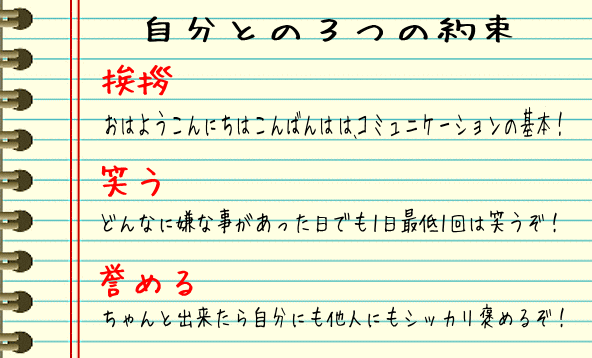 自分との3つの約束
挨拶
おはようこんにちはこんばんはは、コミュニケーションの基本!
笑う
どんなに嫌な事があった日でも1日最低1回は笑うぞ!
誉める
ちゃんと出来たら自分にも他人にもシッカリ褒めるぞ!